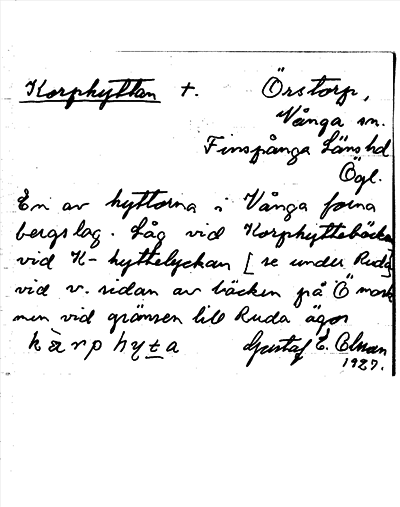 Korphyttan +. Örstorp,
Vånga sn.
Finspånga Länshd
Ögl.
En av hyttorna i Vånga forna
bergslag. Låg vid Korphyttebäcken
vid K-hyttelyckan [se under Ruda]
vid v. sidan av bäcken på Ö mark
nen vid gränsen till Ruda ägor
kàrphyta Gustaf E.
1927.